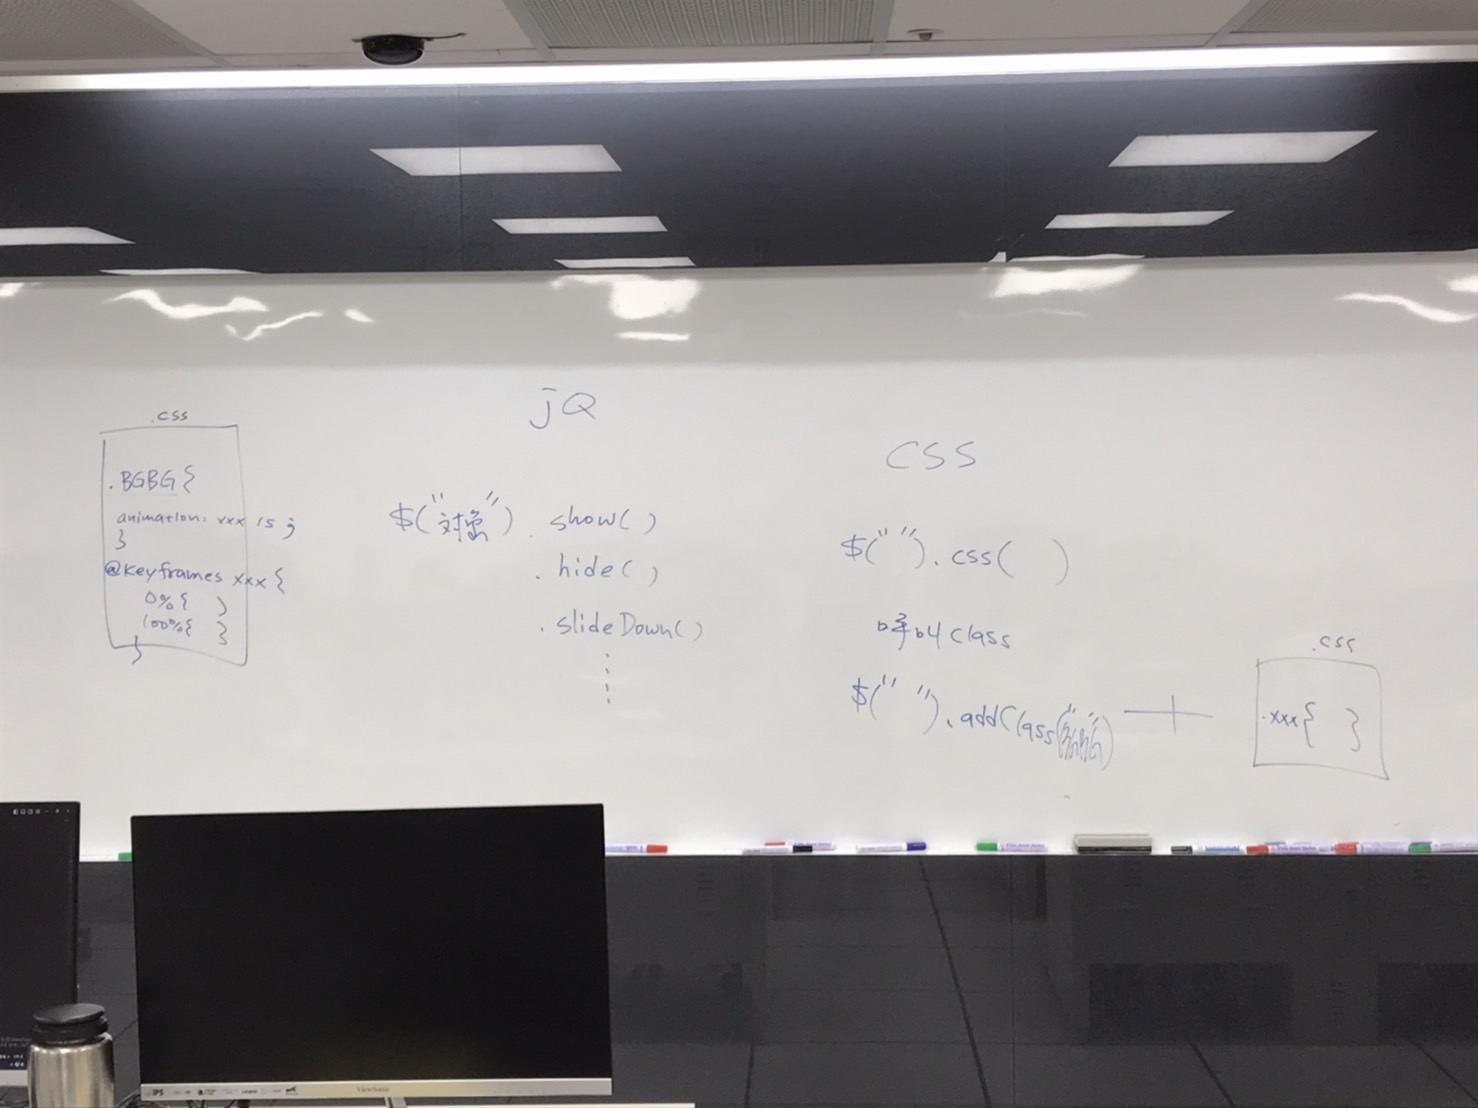 .css
.BGBG{
animation: xxx 1s ;
}
@keyframes xxx {
0%{ }
100%{ }
}
jQ
$("対象") . show( )
. hide( )
. slideDown( )
CSS
$(" ").css( )
呼叫 class
$(" ").addClass(" ")
+
.css
.xxx{ }
IPS
ViewSonic